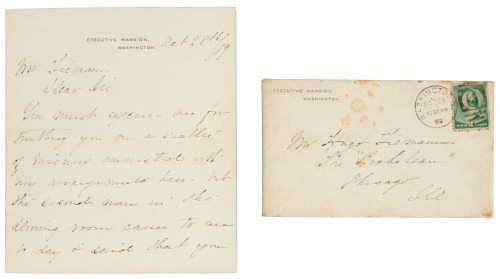 EXECUTIVE MANSION,
WASHINGTON.
Oct 28th/89
Mr
Dear Sir
You must excuse me for
you on a
of connected with
my arrangements here - but
the second man in the
dining room came to me
to day & said that you
EXECUTIVE MANSION,
WASHINGTON.
WASHINGTON
89
Mr Hugo
The "Richelieu"
Chicago
Ill